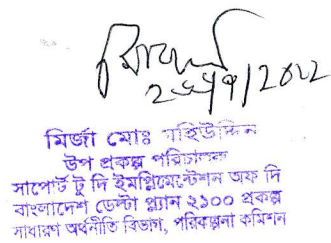 মির্জা মোঃ মহিউদ্দিন
উপ প্রকল্প পরিচালক
সাপোর্ট টু দি ইমপ্লিমেন্টেশন অফ দি
বাংলাদেশ ডেল্টা প্ল্যান ২১০০ প্রকল্প
সাধারণ অর্থনীতি বিভাগ, পরিকল্পনা কমিশন